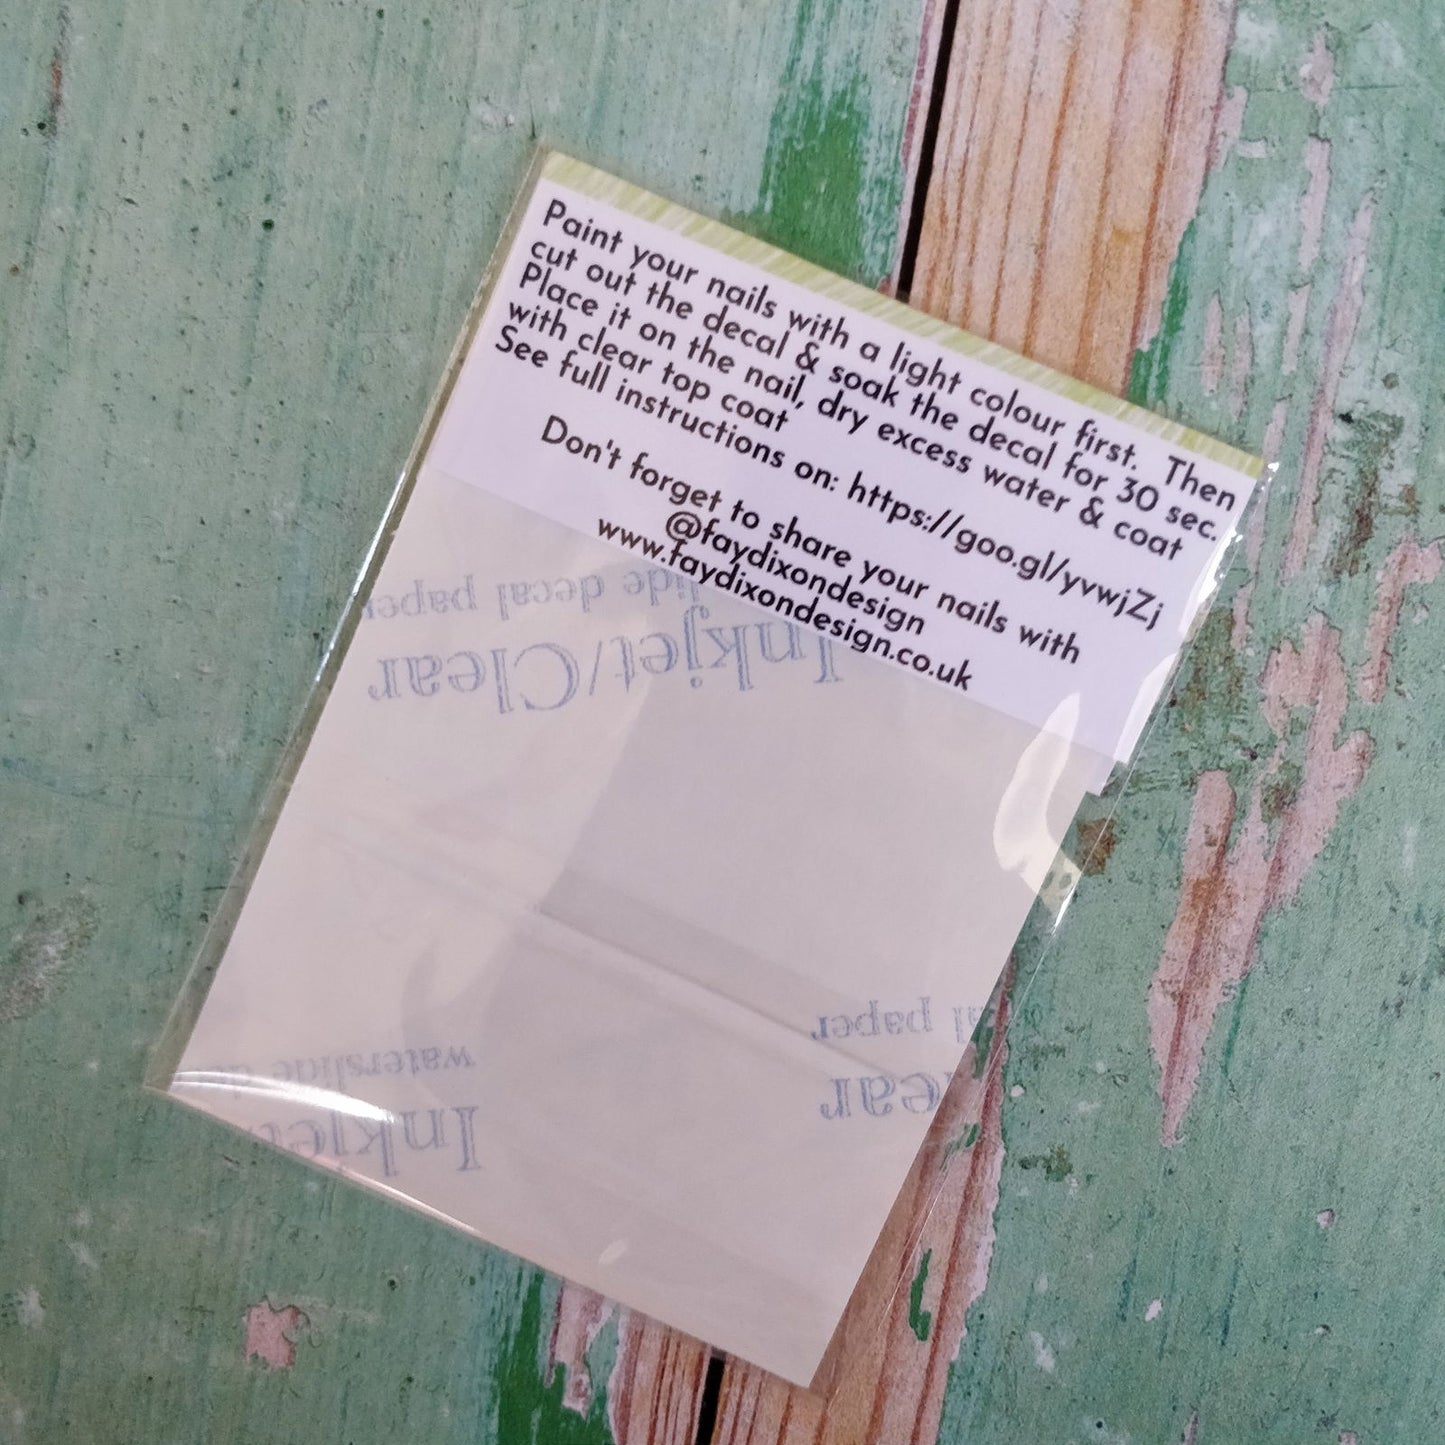 Paint your nails with a light colour first. Then
cut out the decal & soak the decal for 30 sec.
Place it on the nail, dry excess water & coat
with clear top coat
See full instructions on: https://goo.gl/yvwjZj
Don't forget to share your nails with
@faydixondesign
www.faydixondesign.co.uk
Inkjet/Clear
slide decal paper
Inkjet/
waterslide de
ear
al paper